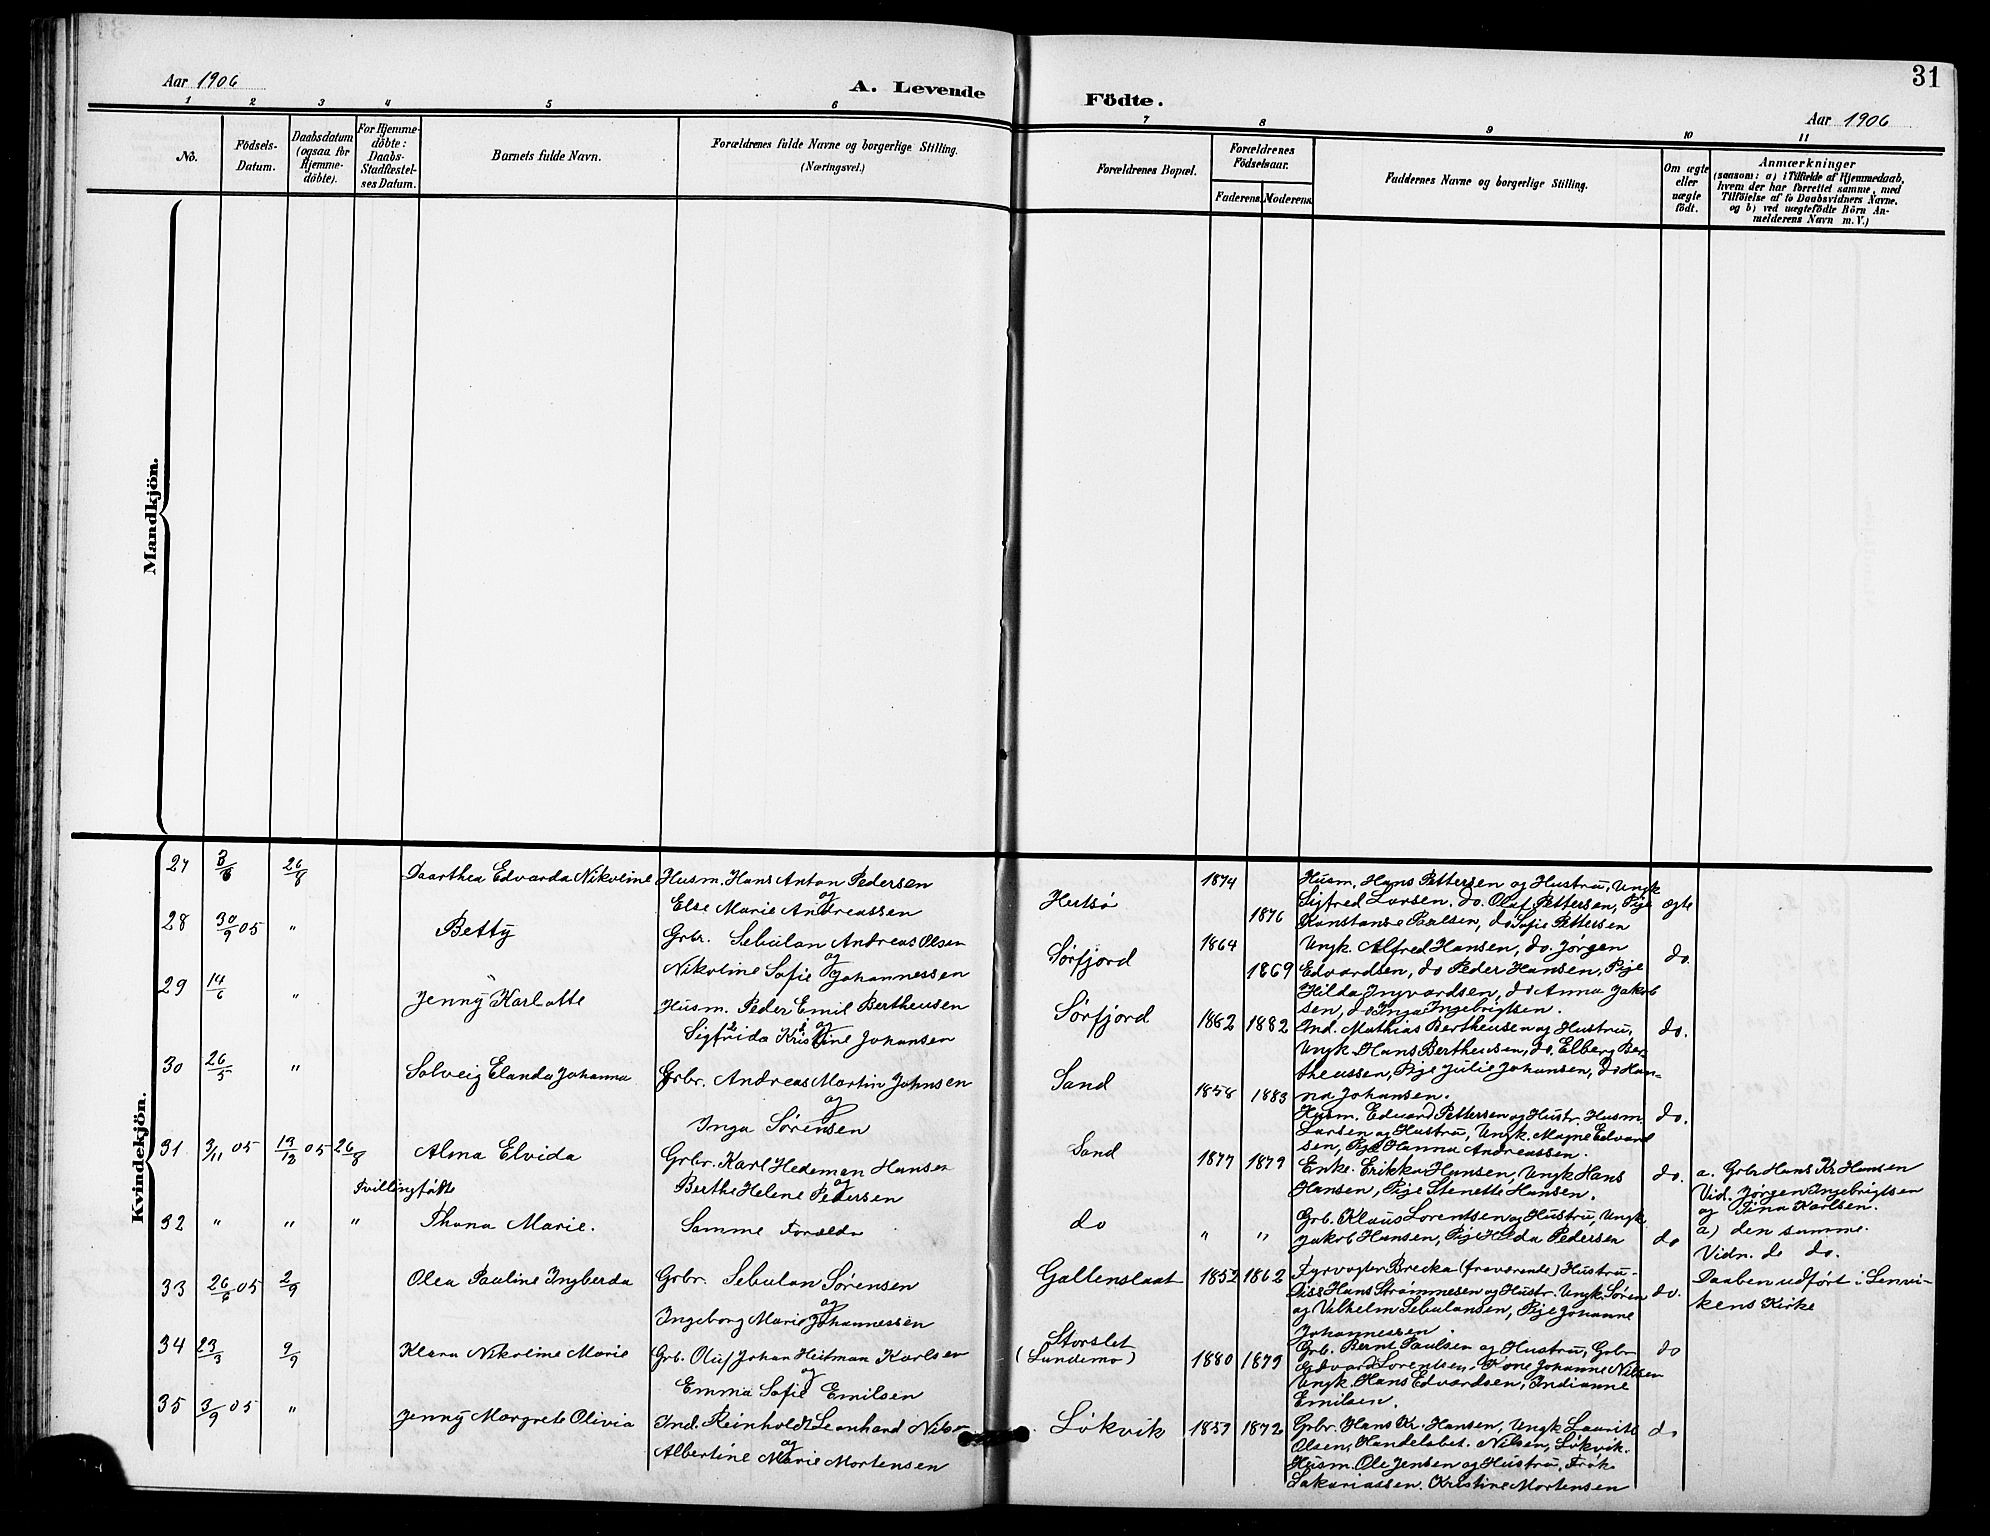 31
Aar 1906
A. Levende Födte.
Aar 1906
1 2 3 4 5 6 7 8 9 10 11
No.
Födsels-
Datum.
Daabsdatum
(ogsaa for
Hjemme-
döbte).
For Hjemme-
döbte:
Daabs-
Stadfæstel-
ses Datum.
Barnets fulde Navn.
Forældrenes fulde Navne og borgerlige Stilling.
(Næringsvei.)
Forældrenes Bopæl.
Forældrenes
Födselsaar.
Faderens. Moderens.
Faddernes Navne og borgerlige Stilling.
Om ægte
eller
uægte
født.
Anmærkninger
(saasom: a) i Tilfælde af Hjemmedaab,
hvem der har forrettet samme, med
Tilføielse af to Daabsvidners Navne.
og b) ved uægtefödte Börn An-
melderens Navn m. V.)
Mandkjön.
Kvindekjön.
27 26/8 Daarthea Edvarda Nikoline Husm. Hans Anton Pedersen
og
Else Marie Andreassen
Hertsø 1874 1876
Husm. Hans Pettersen og Hustru, Ungk
Sigfred Larsen, do. Olaf Pettersen, Pige
Konstanse Paulsen, do Sofie Pettersen
ægte
28 30/9 05 " Betty Grbr. Sebulan Andreas Olsen
og
Nikoline Sofie Johannessen
Sørfjord 1864 1869
Ungk. Alfred Hansen, do. Jørgen
Edvardsen, do Peder Hansen, Pige
Hilda Ingvardsen, do Anna Jakob
sen, do Inga Ingebrigtsen.
do.
29 14/6 " Jenny Karlotte Husm. Peder Emil Bertheusen
og
Sigfrida Kristine Johansen
Sørfjord 1882 1882
Ind. Mathias Bertheusen og Hustru,
Ungk. Hans Bertheusen, do. Elberg Ber-
theussen, Pige Julie Johansen, do Han-
na Johansen.
do.
30 26/5 " Solveig Elanda Johanna Grbr. Andreas Martin Johnsen
og
Inga Sørensen
Sand 1858 1883
Husm. Edvard Pettersen og Hustr. Husm.
Larsen og Hustru, Ungk. Magne Edvard
sen, Pige Hanna Andreassen.
do.
31 3/11 05 13/12 05 26/8 Alma Elvida Grbr. Karl Hedeman Hansen
og
Berthe Helene Pedersen
Tvillingfödte
Sand 1877 1879
Enke. Erikka Hansen, Ungk Hans
Hansen, Pige Stenette Hansen.
do.
a. Grbr Hans Kr. Hansen
Vid. Jørgen Ingebrigtsen
og Tina Karlsen.
32 " " " Thona Marie. Samme Forældre
do " "
Grb. Klaus Lorentsen og Hustru, Ungk
Jakob Hansen, Pige Hilda Pedersen
do
a) den samme.
Vidn. de do.
33 26/9 05 2/9 Olea Pauline Ingberda Grbr. Sebulan Sørensen
og
Ingeborg Marie Johannessen
Galtenslaat 1852 1862
Fyrvogter Brecka (fraværende) Hustru-
Siss Hans Strømmesen og Hustr. Ungk. Søren
og Vilhelm Sebulansen, Pige Johanne
Johannessen.
do.
Daaben udført i Lenvi-
kens Kirke
34 23/3 9/9 Klara Nikoline Marie Grb. Oluf Johan Heitman Karlsen
og
Emma Sofie Emilsen
Storslet
(Lundemo) 1880 1879
Grb. Bernt Paulsen og Hustru, Grbr
Edvard Lorentsen, Kone Johanne Nilsen
Ungk. Hans Edvardsen, Indianne
Emilsen.
do
35 3/9 05 " Jenny Margrete Olivia Ind. Reinholdt Leonhard Nilsen
og
Albertine Marie Mortensen
Løkvik 1857 1872
Grbr. Hans Kr. Hansen, Ungk Laurits
Olsen, Handelsbet. Nilsen, Løkvik.
Husm. Ole Jensen og Hustru, Frøk
Sakariassen. Kristine Mortensen
do